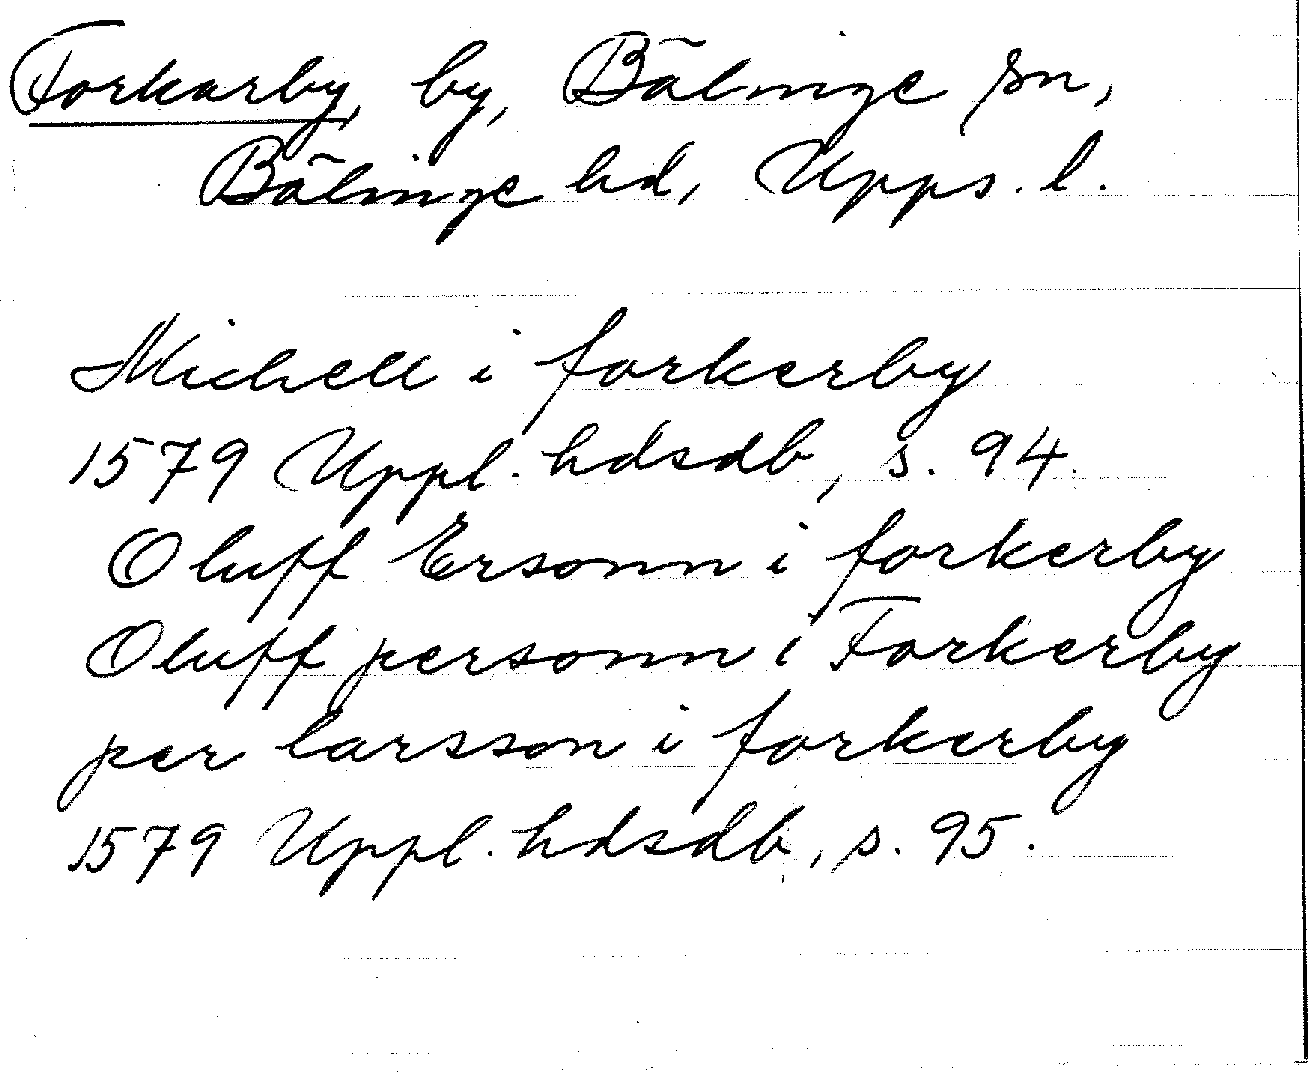 Forkarby, by, Bälinge sn,
Bälinge hd, Upps. l.
Michell i forkerby
1579 Uppl. hdsdb, s. 94.
Oluff Ersonn i forkerby
Oluff personn i Forkerby
per larsson i forkerby
1579 Uppl. hdsdb, s. 95.